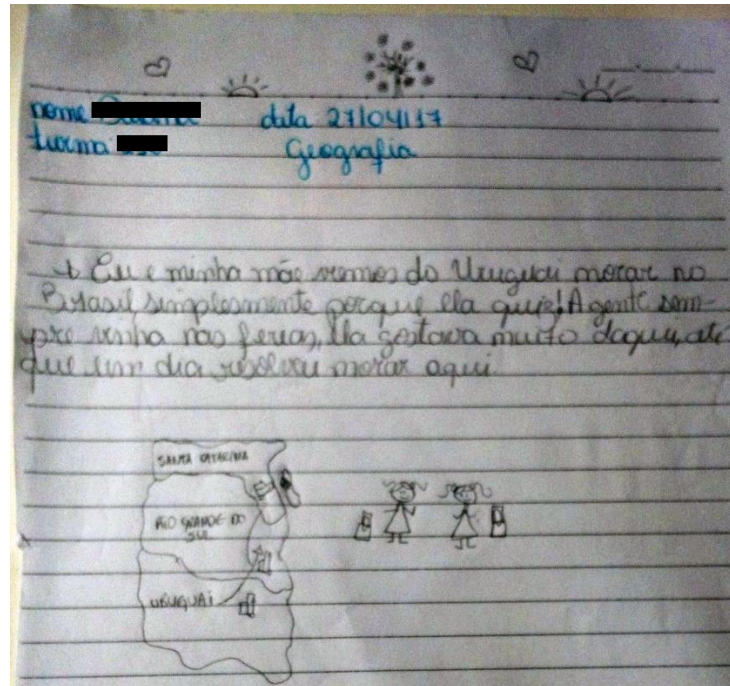 nome
data 27/04/17
turma
Geografia
Eu e minha mãe viemos do Uruguai morar no
Brasil, simplesmente porque ela quiz! A gente sem-
pre vinha nas ferias, Ela gostava muito daqui, até
que um dia resolveu morar aqui
SANTA CATARINA
RIO GRANDE DO
SUL
URUGUAI